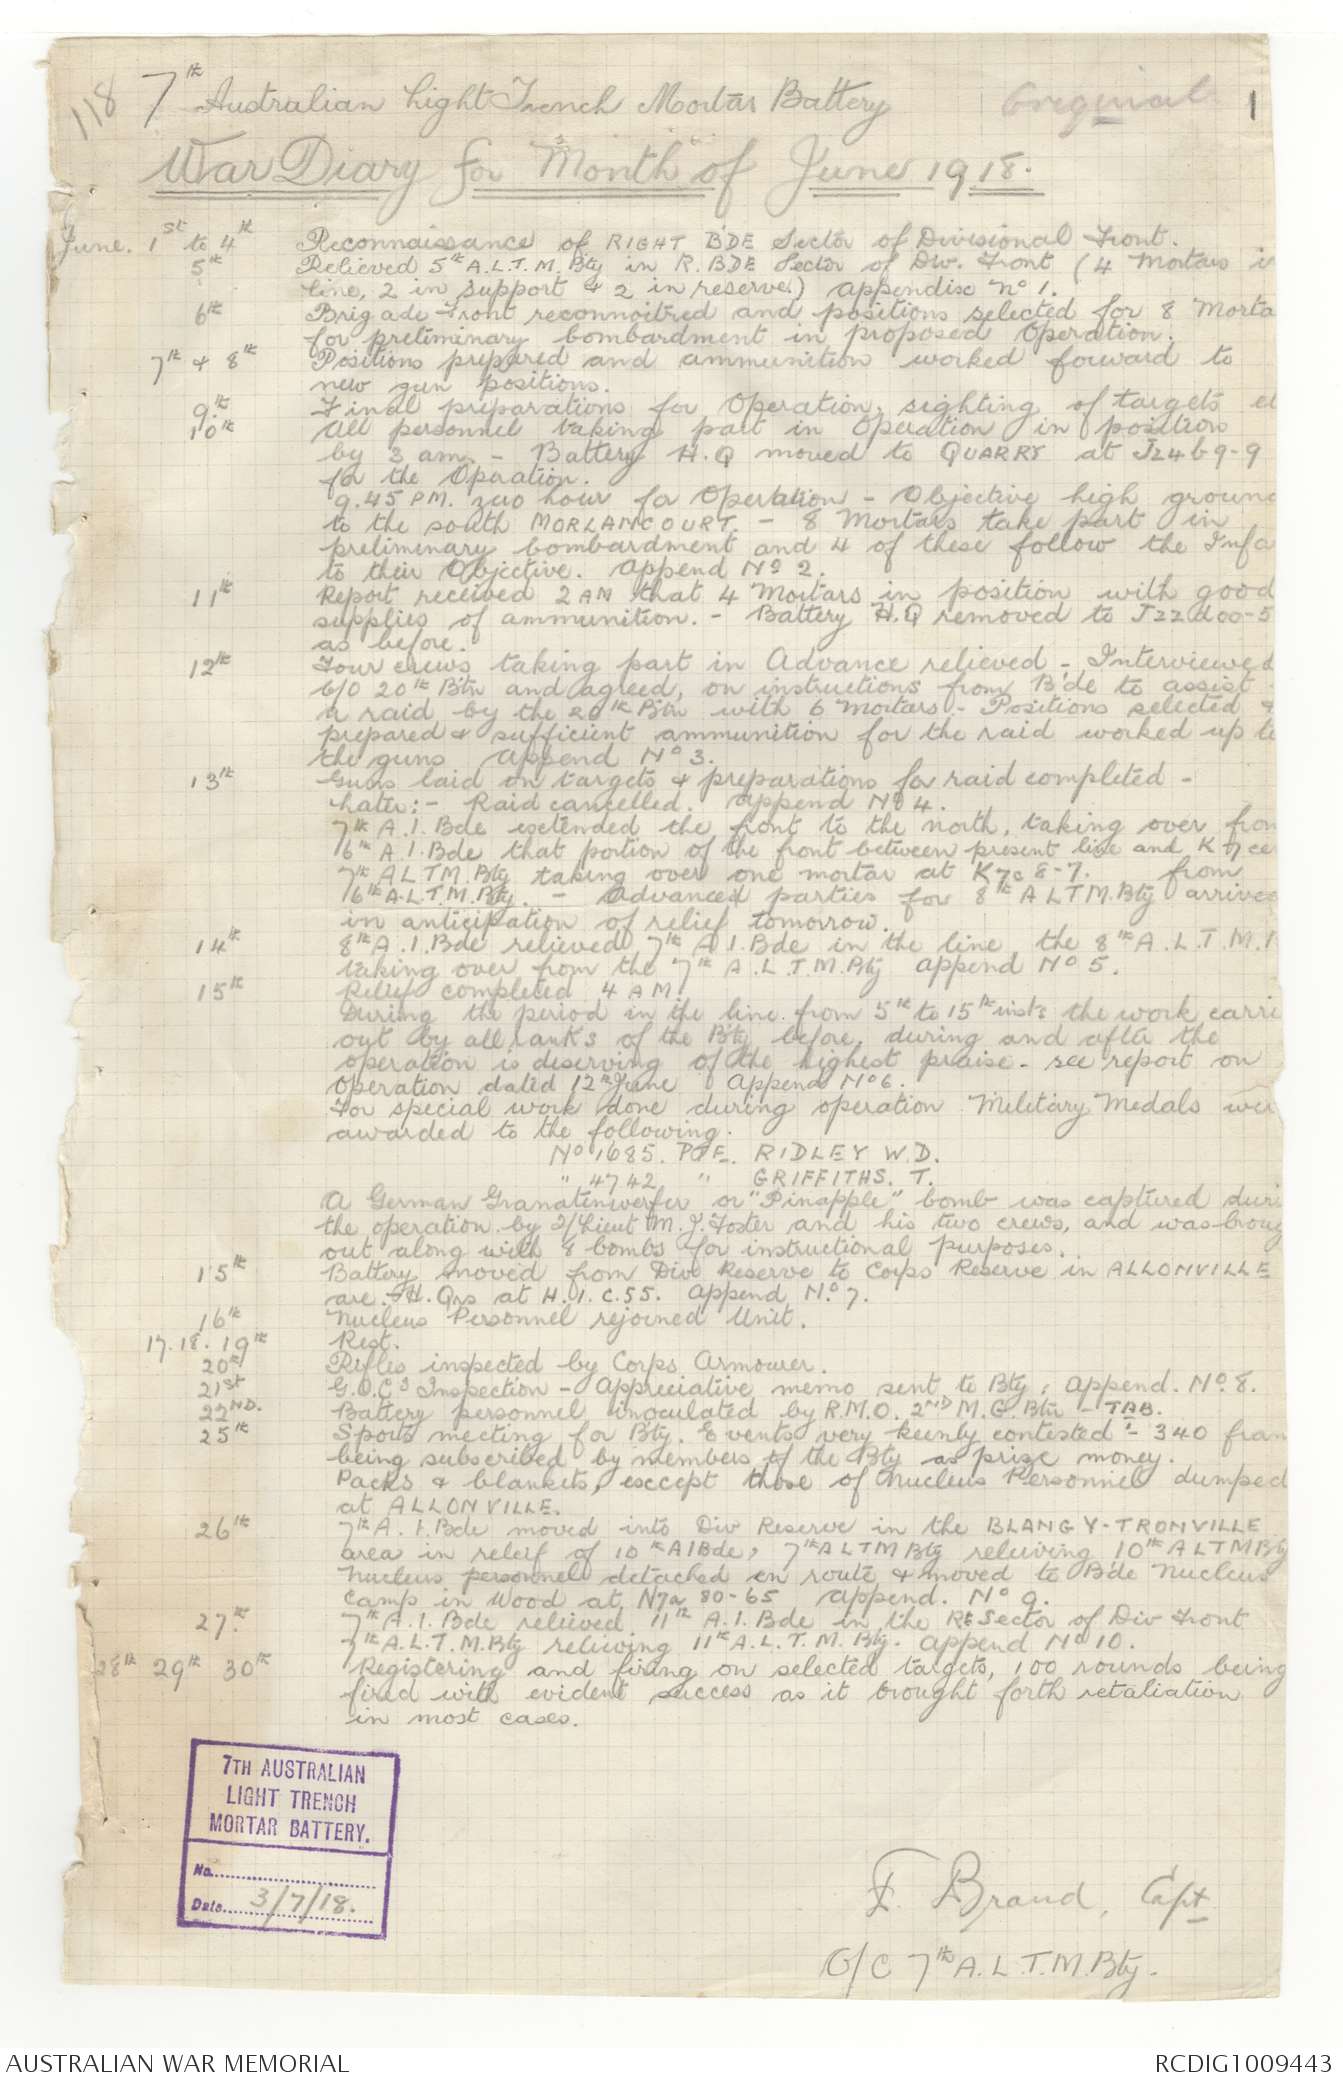 118 7th Australian Light Trench Mortar Battery Original 1
War Diary for Month of June 1918.
June. 1st to 4th Reconnaissance of RIGHT B'DE Sector of Divisional Front.
5th Relieved 5th A.L.T.M. Bty in R. BDE Sector of Div. Front (4 Mortars in
line, 2 in support & 2 in reserve.) appendix No 1.
6th Brigade Front reconnoitred and positions selected for 8 Morta
for preliminary bombardment in proposed Operation.
7th & 8th Positions prepared and ammunition worked forward to
new gun positions.
9th Final preparations for Operation, sighting of targets et
10th All personnel taking part in Operation in position
by 3 am. - Battery H.Q moved to QUARRY at J24b9-9
for the Operation.
9.45 PM. zero hour for Operation - Objective high ground
to the south MORLANCOURT. - 8 Mortars take part in
preliminary bombardment and 4 of these follow the Infa
to their Objective. Append No 2.
11th Report received 2 AM that 4 Mortars in position with good
supplies of ammunition. - Battery H.Q removed to J22d00-5
as before.
12th Four crews taking part in Advance relieved - Interviewed
C/O 20th Btn and agreed, on instructions from B'de to assist
a raid by the 20th Btn with 6 Mortars - Positions selected &
prepared & sufficient ammunition for the raid worked up to
the guns Append No 3.
13th Guns laid on targets & preparations for raid completed -
Later:- Raid cancelled. Append No 4.
7th A.I.Bde extended the front to the north, taking over from
6th A.I.Bde that portion of the front between present line and K7cen
7th ALTM.Bty taking over one mortar at K7c8-7. from
6th A.L.T.M.Bty. - Advanced parties for 8th ALTM.Bty arrived
in anticipation of relief tomorrow.
14th 8th A.I.Bde relieved 7th A.I.Bde in the line the 8th A.L.T.M.B
taking over from the 7th A.L.T.M.Bty append No 5.
15th Relief completed 4 AM.
During the period in the line from 5th to 15th inst: the work carri
out by all ranks of the Bty before, during and after the
operation is deserving of the highest praise - see report on
operation dated 12th June Append No 6.
For special work done during operation Military Medals wer
awarded to the following.
No 1685. PTE. RIDLEY W.D.
" 4742 " GRIFFITHS. T.
A German Granatenwerfer or "Pinapple" bomb was captured duri
the operation by 2/Lieut M.J. Foster and his two crews, and was broug
out along with 8 bombs for instructional purposes.
15th Battery moved from Div Reserve to Corps Reserve in ALLONVILLE
are. H.Qrs at H.I.C.55. Append No. 7.
16th Nucleus Personnel rejoined Unit.
17. 18. 19th Rest.
20th Rifles inspected by Corps Armourer.
21st G.O.C's Inspection - Appreciative memo sent to Bty; Append. No. 8.
22ND. Battery personnel inoculated by R.M.O. 2ND M.G. Btn - TAB.
25th Sports meeting for Bty. Events very keenly contested - 340 fran
being subscribed by members of the Bty as prize money.
Packs & blankets, except those of Nucleus Personnel dumped
at ALLONVILLE.
26th 7th A.I.Bde moved into Div Reserve in the BLANGY-TRONVILLE
area in releif of 10th AIBde, 7th ALTM Bty releiving 10th ALTMBty
Nucleus personnel detached en route & moved to Bde Nucleus
Camp in Wood at N7a 80-65 append. No 9.
27th 7th A.I.Bde relieved 11th A.I.Bde in the Rt Sector of Div Front
7th A.L.T.M.Bty relieving 11th A.L.T.M.Bty. append No 10.
28th 29th 30th Registering and firing on selected targets, 100 rounds being
fired with evident success as it brought forth retaliation
in most cases.
7TH AUSTRALIAN
LIGHT TRENCH
MORTAR BATTERY.
No.
Date 3/7/18.
F. Brand, Capt
O/C 7th A.L.T.M.Bty.
AUSTRALIAN WAR MEMORIAL RCDIG1009443